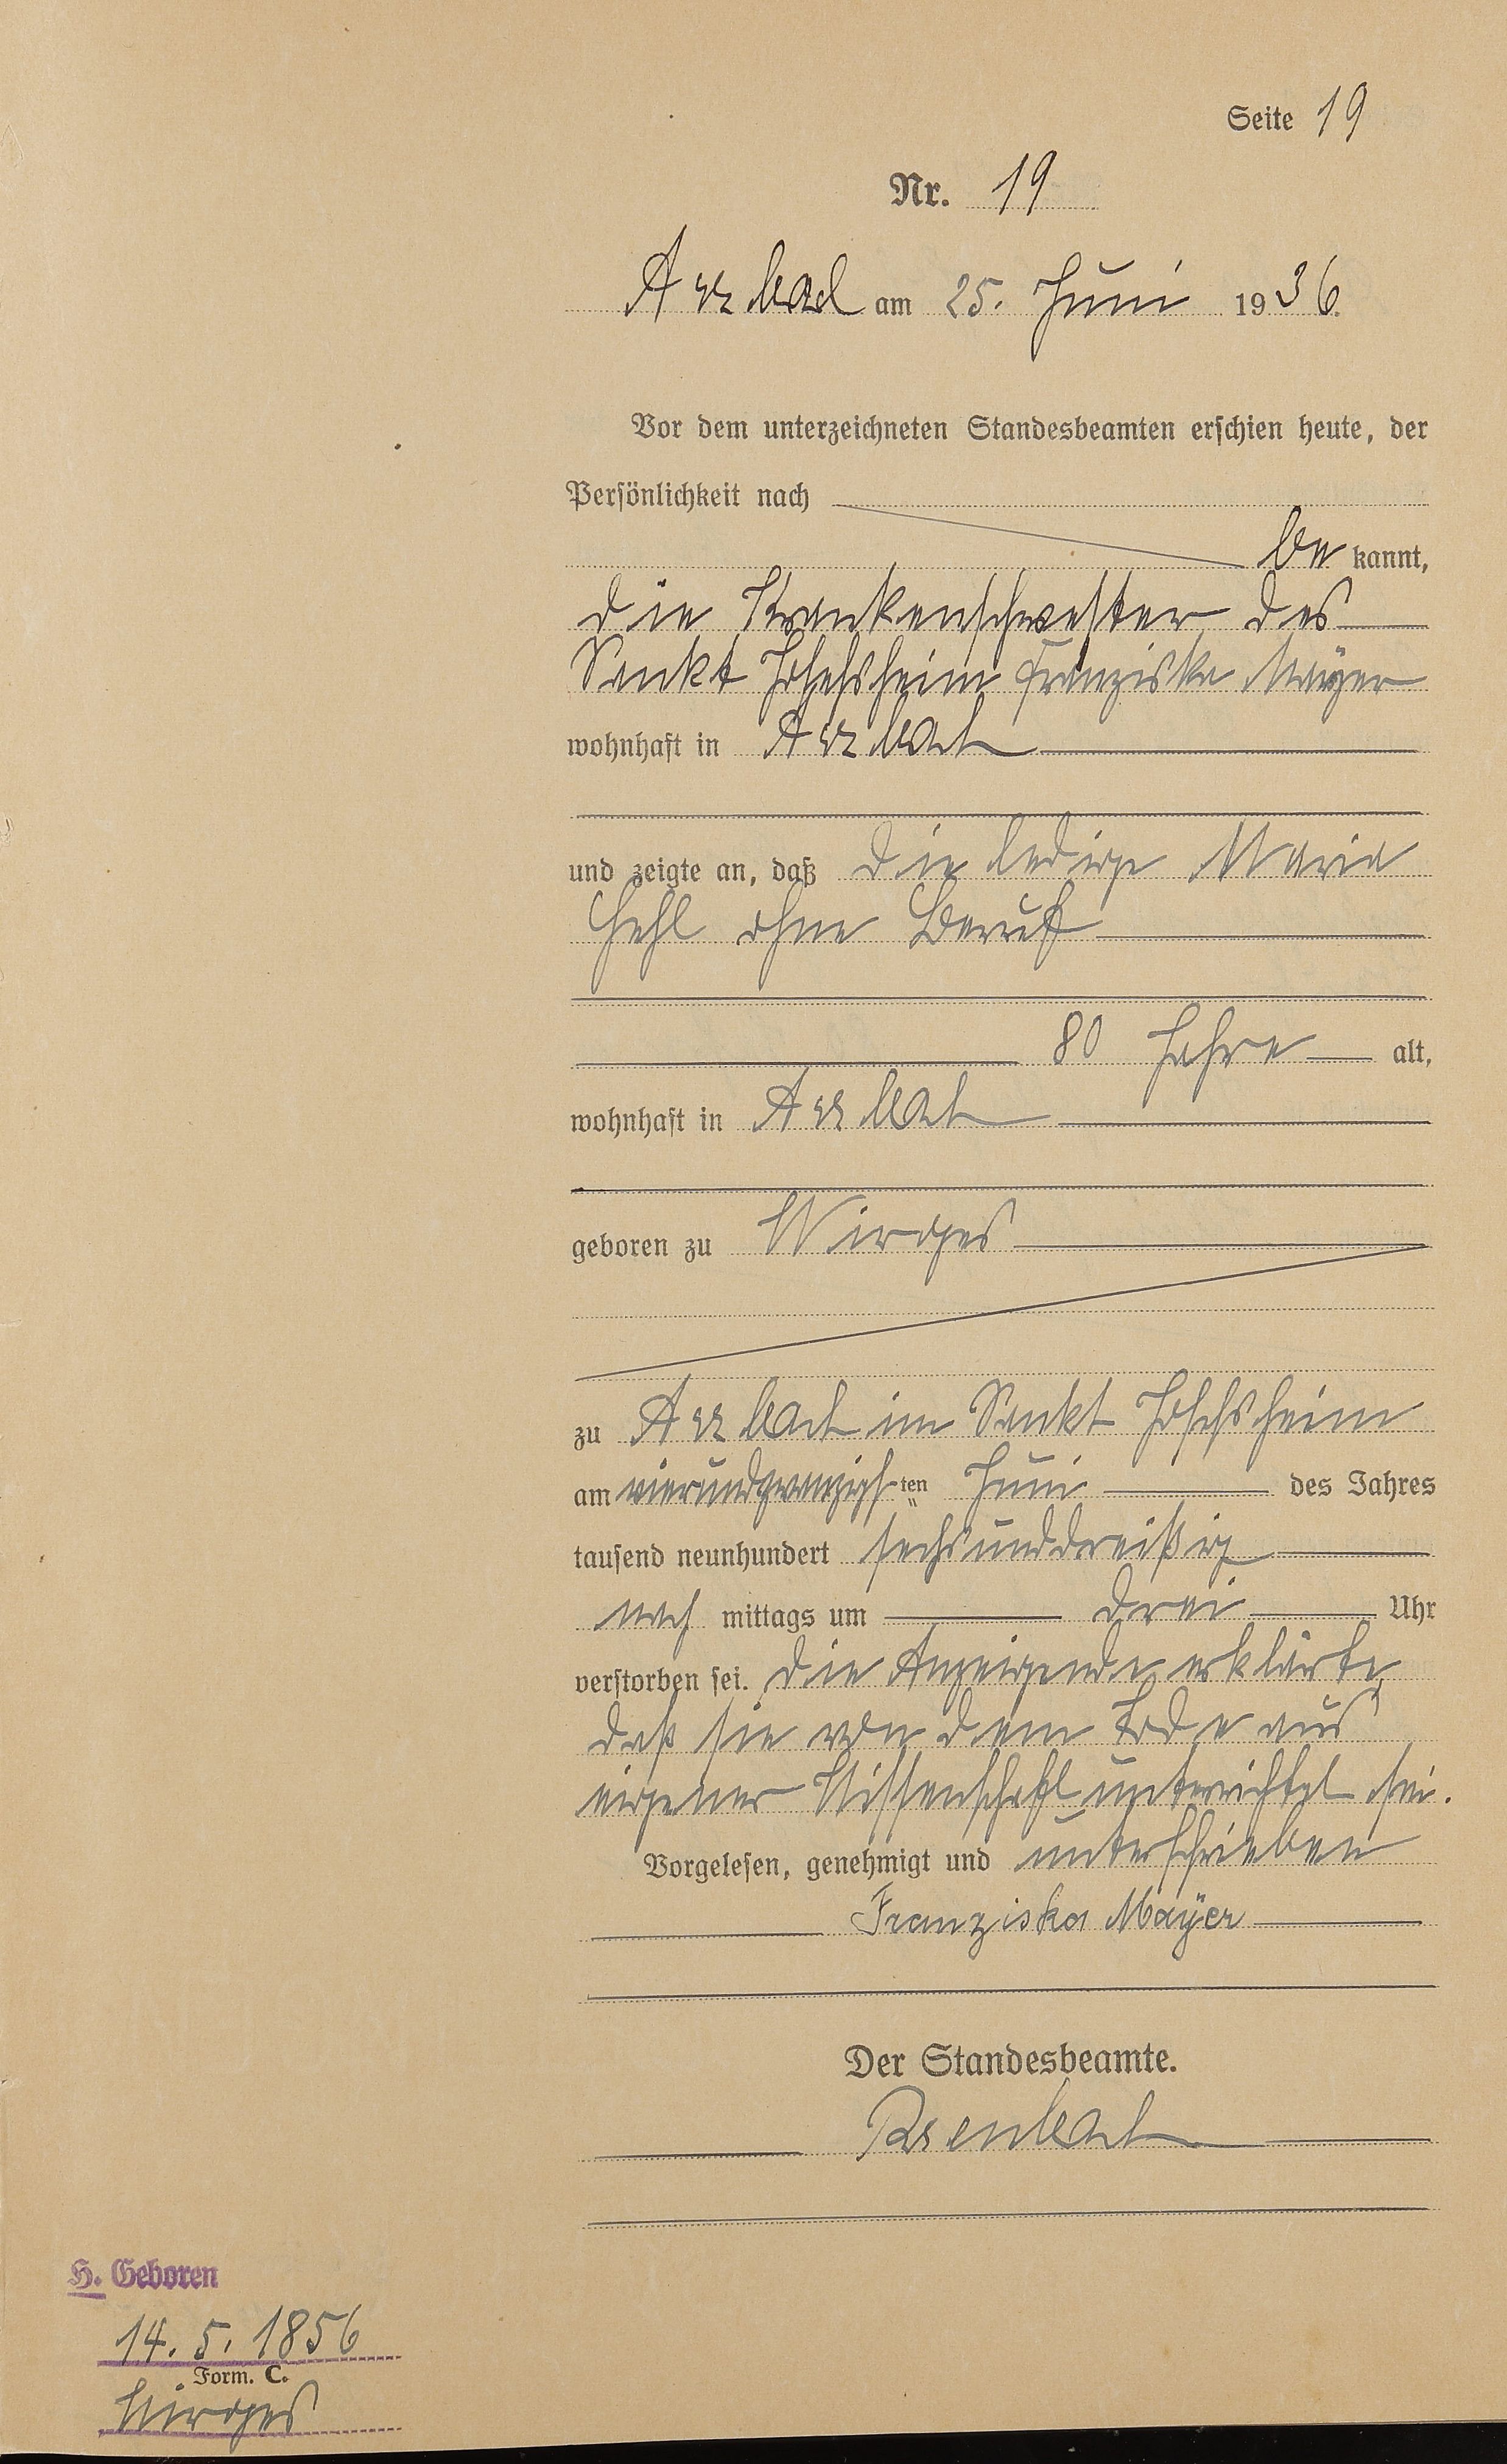 Seite 19
Nr. 19
Arzbach am 25. Juni 1936.
Vor dem unterzeichneten Standesbeamten erschien heute, der
Persönlichkeit nach
be kannt,
die Krankenschwester des
Sankt Josefsheim Franziska Mayer
wohnhaft in Arzbach
und zeigte an, daß die ledige Maria
Gehl ohne Beruf
80 Jahre alt,
wohnhaft in Arzbach
geboren zu Wirges
zu Arzbach im Sankt Josefsheim
am vierundzwanzigsten Juni des Jahres
tausend neunhundert sechsunddreißig
nach mittags um drei Uhr
verstorben sei. Die Anzeigende erklärte,
daß sie von dem Tode aus
eigener Wissenschaft unterrichtet sei.
Vorgelesen, genehmigt und unterschrieben
Franziska Mayer
Der Standesbeamte.
H. Geboren
14. 5. 1856
Form. C.
Wirges